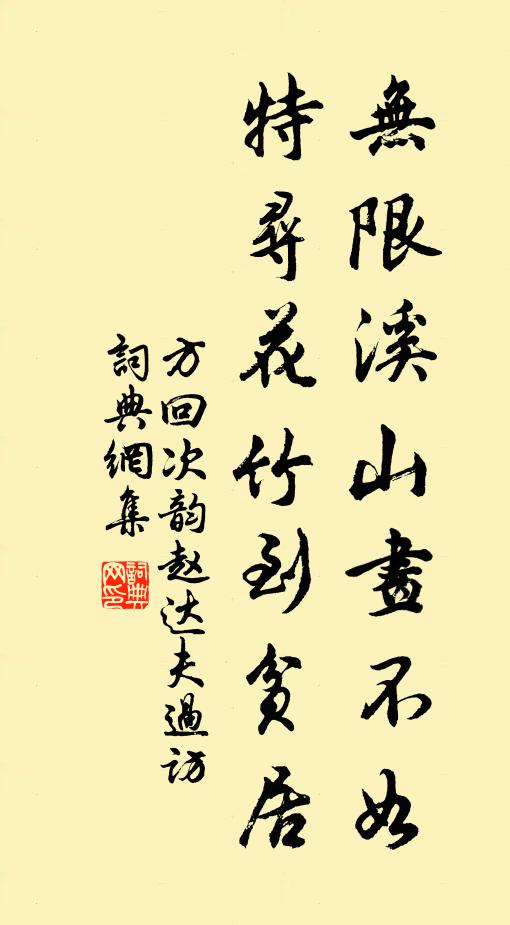 無限溪山畫不如
特尋花竹到貧居
方回次韵赵达夫過訪
詞典網集
詞典網印